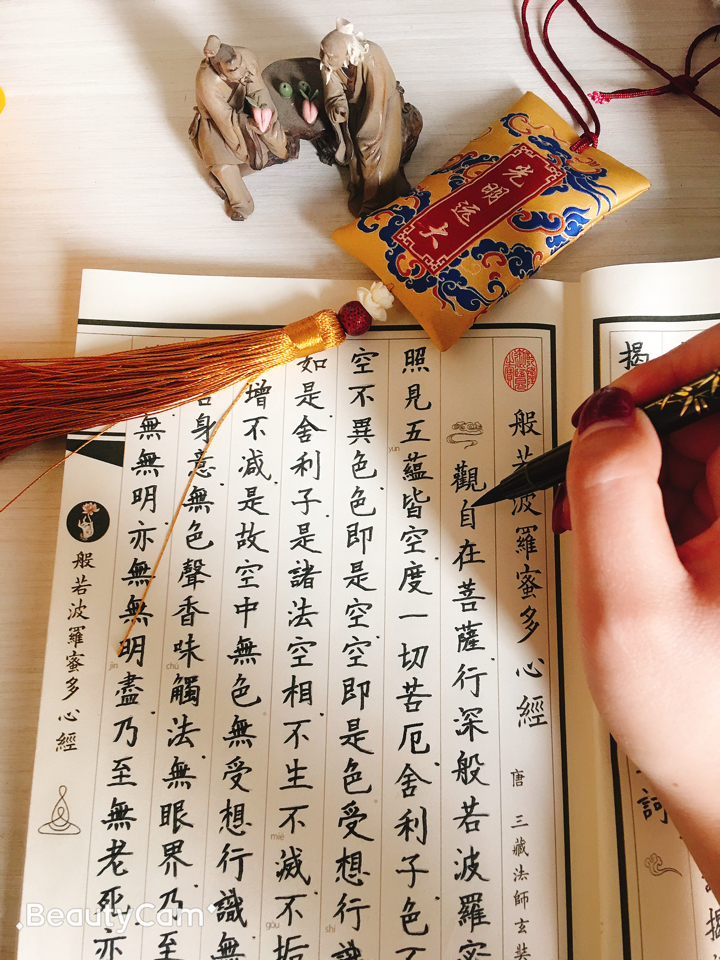 光明远大
揭
訶
揭
般若波羅蜜多心經 唐 三藏法師玄奘
觀自在菩薩行深般若波羅
照見五蘊皆空度一切苦厄舍利子色不
yùn
空不異色色即是空空即是色受想行識
shí
如是舍利子是諸法空相不生不滅不垢
miè
gòu
增不減是故空中無色無受想行識無
身意無色聲香味觸法無眼界乃至
chù
無無明亦無無明盡乃至無老死亦
jìn
般若波羅蜜多心經
BeautyCam